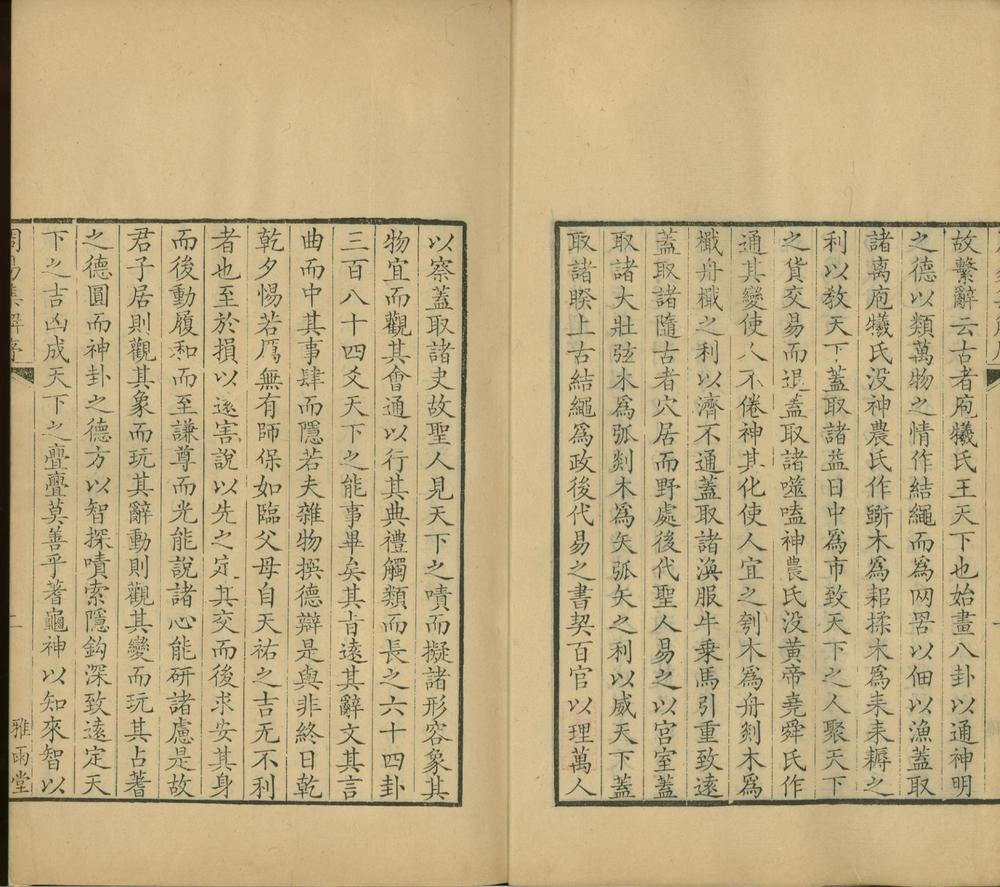 故繫辭云古者庖犧氏王天下也始畫八卦以通神明
之德以類萬物之情作結繩而為网罟以佃以漁蓋取
諸离庖犧氏没神農氏作斵木為耜揉木為耒耒耨之
利以敎天下蓋取諸益日中為市致天下之人聚天下
之貨交易而退蓋取諸噬嗑神農氏没黄帝堯舜氏作
通其變使人不倦神其化使人宜之刳木為舟剡木為
檝舟檝之利以濟不通蓋取諸渙服牛乗馬引重致遠
蓋取諸隨古者穴居而野處後代聖人易之以宮室蓋
取諸大壯弦木為弧剡木為矢弧矢之利以威天下蓋
取諸睽上古結繩為政後代易之書契百官以理萬人
以察蓋取諸史故聖人見天下之嘖而擬諸形容象其
物宜而觀其會通以行其典禮觸類而長之六十四卦
三百八十四爻天下之能事畢矣其旨遠其辭文其言
曲而中其事肆而隱若夫雜物撰德辯是與非終日乾
乾夕惕若厲無有師保如臨父母自天祐之吉无不利
者也至於損以遠害說以先之定其交而後求安其身
而後動履和而至謙尊而光能說諸心能研諸慮是故
君子居則觀其象而玩其辭動則觀其變而玩其占蓍
之德圓而神卦之德方以智探嘖索隱鈎深致遠定天
下之吉凶成天下之亹亹莫善乎蓍龜神以知來智以
周易集解序 二 雅雨堂